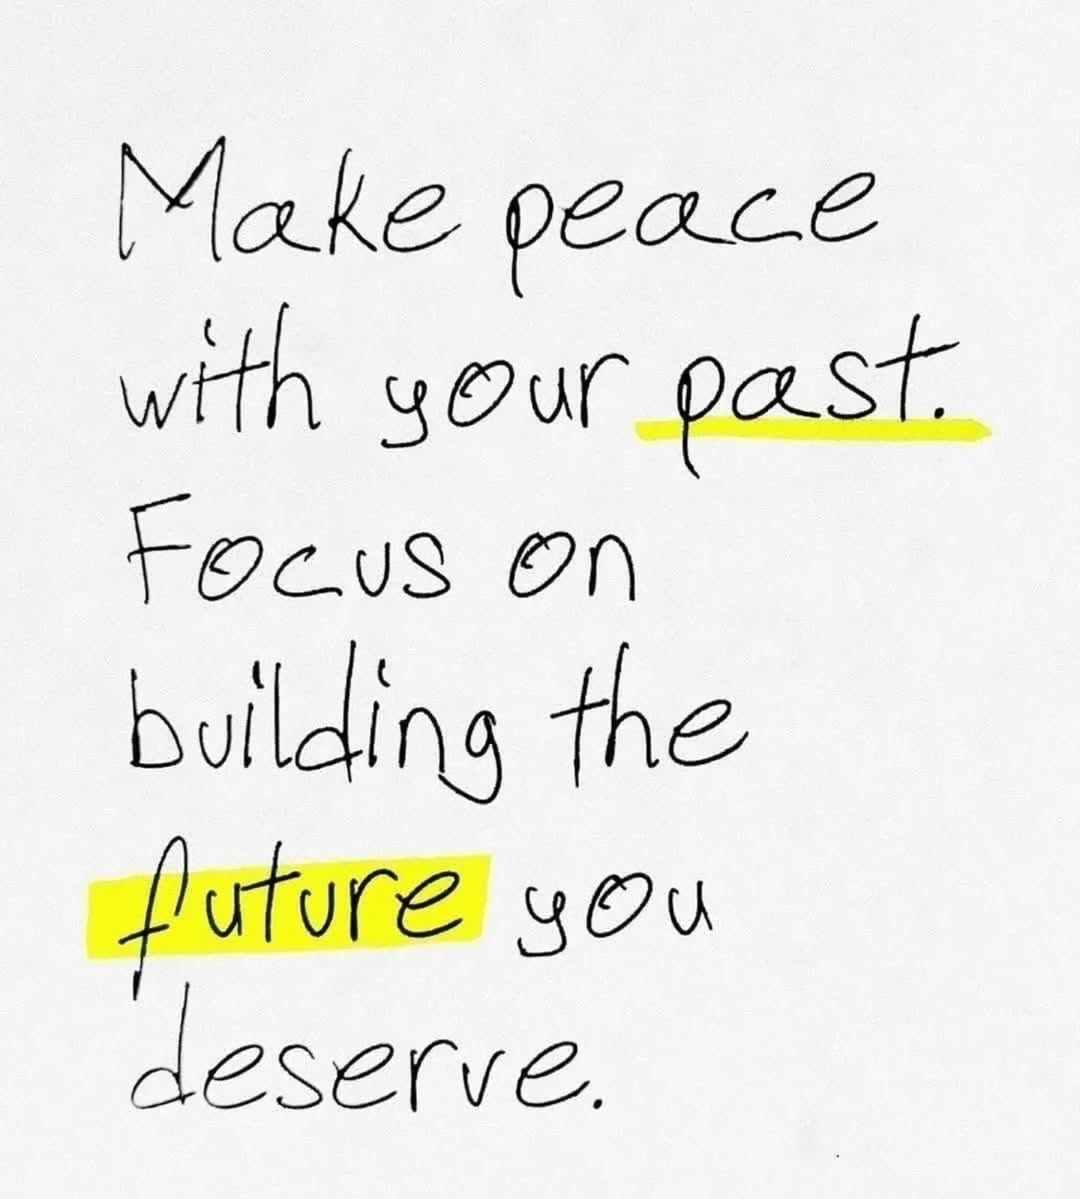 Make peace
with your past.
Focus on
building the
future you
deserve.